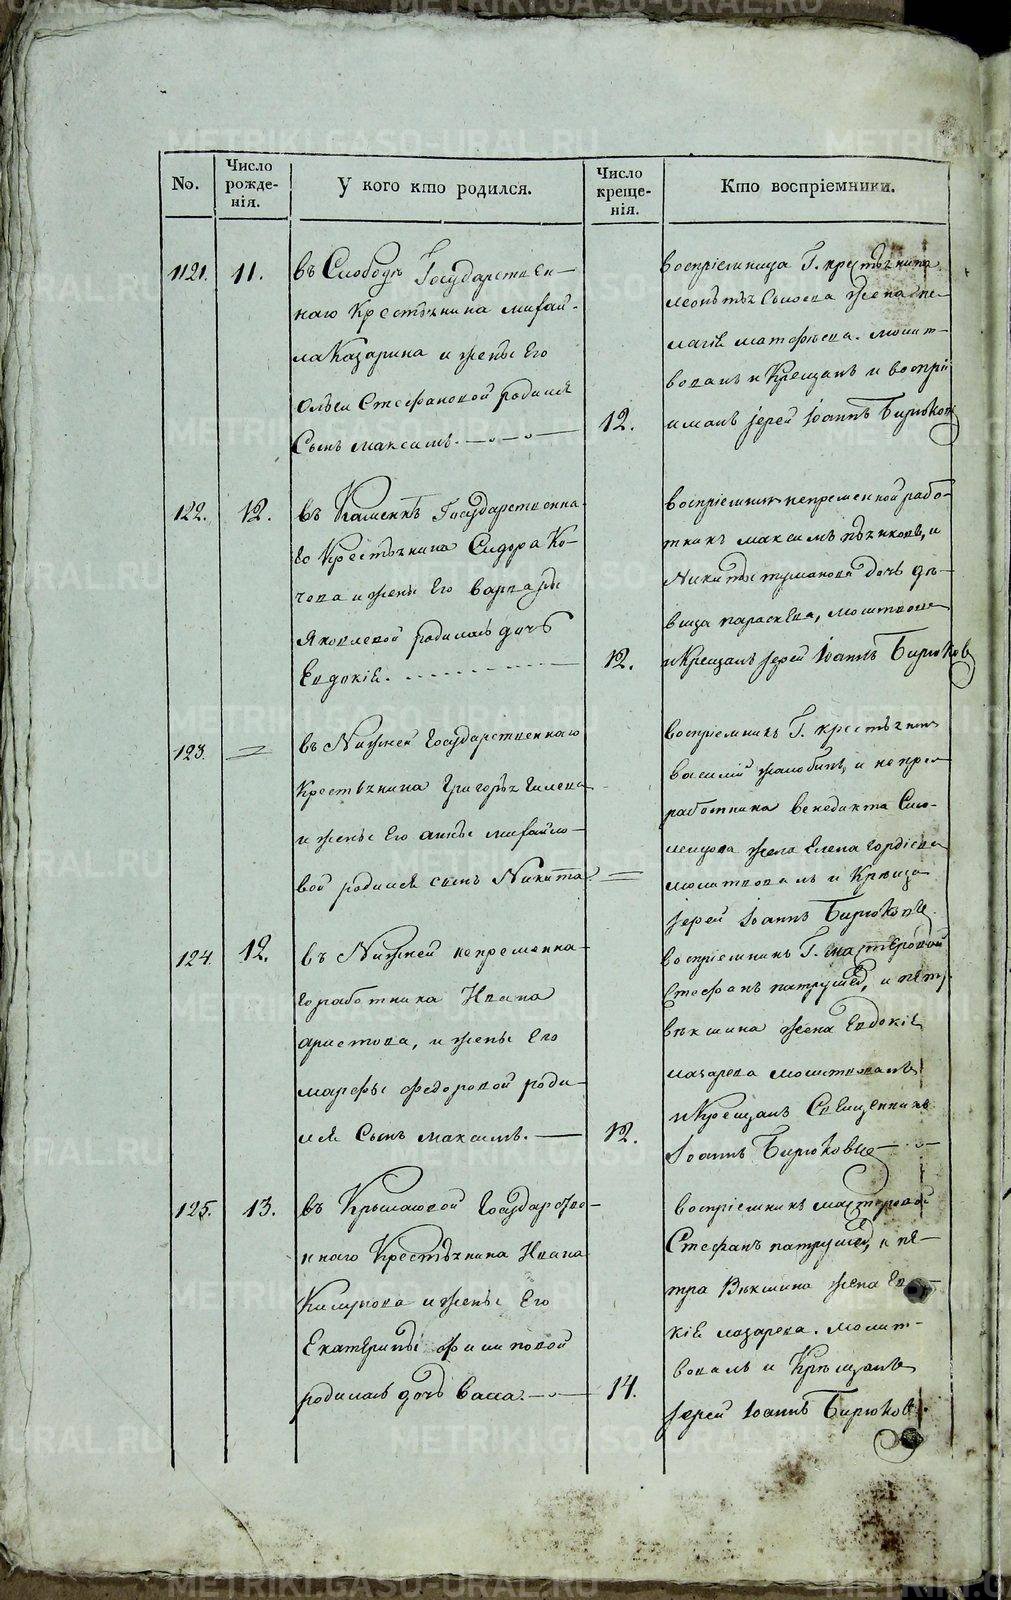 No.
Число рожде-нія.
У кого кто родился.
Число креще-нія.
Кто воспріемники.
1121.
11.
въ Слободѣ Государствен-
наго Крестьянина михай-
ла Казарина и жены Его
Ольги Стефановой родился
Сынъ максимъ.
12.
воспріемница Г. крестьянина
жена пе-
лагія матфѣева. молит-
вовалъ и Крещалъ и воспрі
ималъ іерей Іоаннъ Бирюковъ
122.
12.
въ Каменкѣ Государственна-
го Крестьянина Сидора Ко-
чева и жены Его варвары
Яковлевой родилась дочь
Евдокія.
12.
воспріемникъ непременной рабо-
тникъ максимъ и
Никиты туманова дочь дѣ-
вица параскева, молитвовалъ
и Крещалъ іерей Іоаннъ Бирюковъ
123.
въ Нижней Государственнаго
Крестьянина Григорья
и жены Его анны михайло-
вой родился сынъ Никита
воспріемникъ Г. крестьянинъ
василій и непрем
работника венедикта
жена Елена гордіева
молитвовалъ и Крѣщалъ
іерей Іоаннъ Бирюковъ
124.
12.
въ Нижней непременна-
го работника Ивана
аристова, и жены Его
марфы федоровой роди-
лся Сынъ максимъ.
12.
воспріемникъ Г. мастеровой
Стефанъ патрушев, и пет
вѣкшина жена Евдокія
лазарева молитвовалъ
и Крещалъ Священникъ
Іоаннъ Бирюковъ
125.
13.
въ Крылатовой Государстве-
ннаго Крестьянина Ивана
и жены Его
Екатерины филиповой
родилась дочь васса.
14.
воспріемникъ мастеровой
Стефанъ патрушев, и пе-
тра Вѣкшина жена Евдо
кія лазарева. молит-
вовалъ и Крѣщалъ
іерей Іоаннъ Бирюков
METRIKI.GASO-URAL.RU